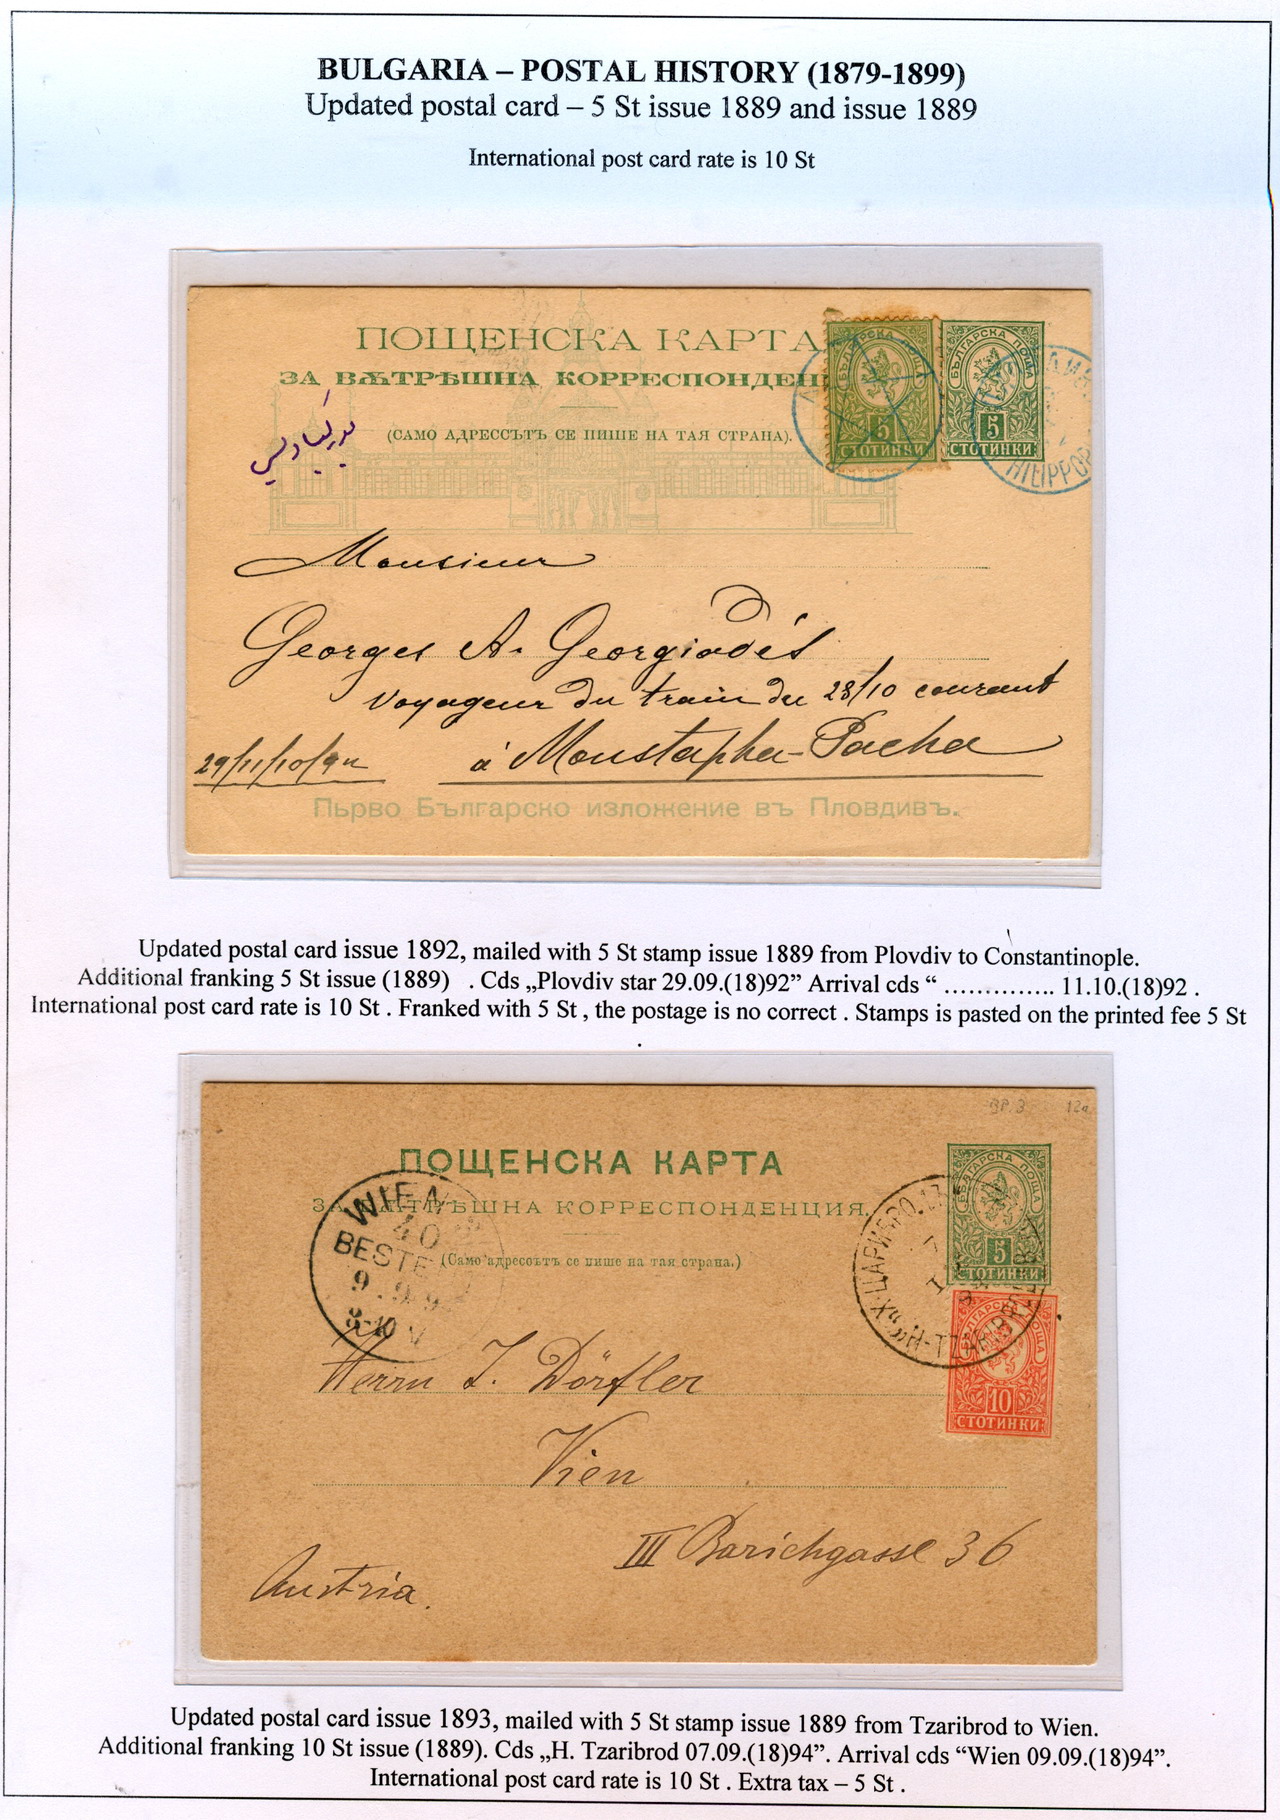 BULGARIA – POSTAL HISTORY (1879-1899)
Updated postal card – 5 St issue 1889 and issue 1889
International post card rate is 10 St
ПОЩЕНСКА КАРТА
ЗА ВѪТРѢШНА КОРРЕСПОНДЕН
(САМО АДРЕССЪТЪ СЕ ПИШЕ НА ТАЯ СТРАНА).
БЪЛГАРСКА ПОЩА
5
СТОТИНКИ
БЪЛГАРСКА ПОЩА
5
СТОТИНКИ
HILIPPOP
Monsieur
Georges A. Georgiadés
Voyageur du train du 28/10 courant
à Moustapha-Pacha
29/11/10/92
Първо Българско изложение въ Пловдивъ.
Updated postal card issue 1892, mailed with 5 St stamp issue 1889 from Plovdiv to Constantinople.
Additional franking 5 St issue (1889) . Cds „Plovdiv star 29.09.(18)92” Arrival cds “ ………….. 11.10.(18)92 .
International post card rate is 10 St . Franked with 5 St , the postage is no correct . Stamps is pasted on the printed fee 5 St
BP. 3 12a
ПОЩЕНСКА КАРТА
ЗА ВѪТРѢШНА КОРРЕСПОНДЕНЦИЯ.
(Само адресътъ се пише на тая страна.)
БЪЛГАРСКА ПОЩА
5
СТОТИНКИ
БЪЛГАРСКА ПОЩА
10
СТОТИНКИ
WIEN
40
BESTE
9.9.9
8-10 V
Х. ЦАРИБРО
H-TZARIBR
Herrn J. Dörfler
Wien
III Barichgasse 36
Austria.
Updated postal card issue 1893, mailed with 5 St stamp issue 1889 from Tzaribrod to Wien.
Additional franking 10 St issue (1889). Cds „H. Tzaribrod 07.09.(18)94”. Arrival cds “Wien 09.09.(18)94”.
International post card rate is 10 St . Extra tax – 5 St .